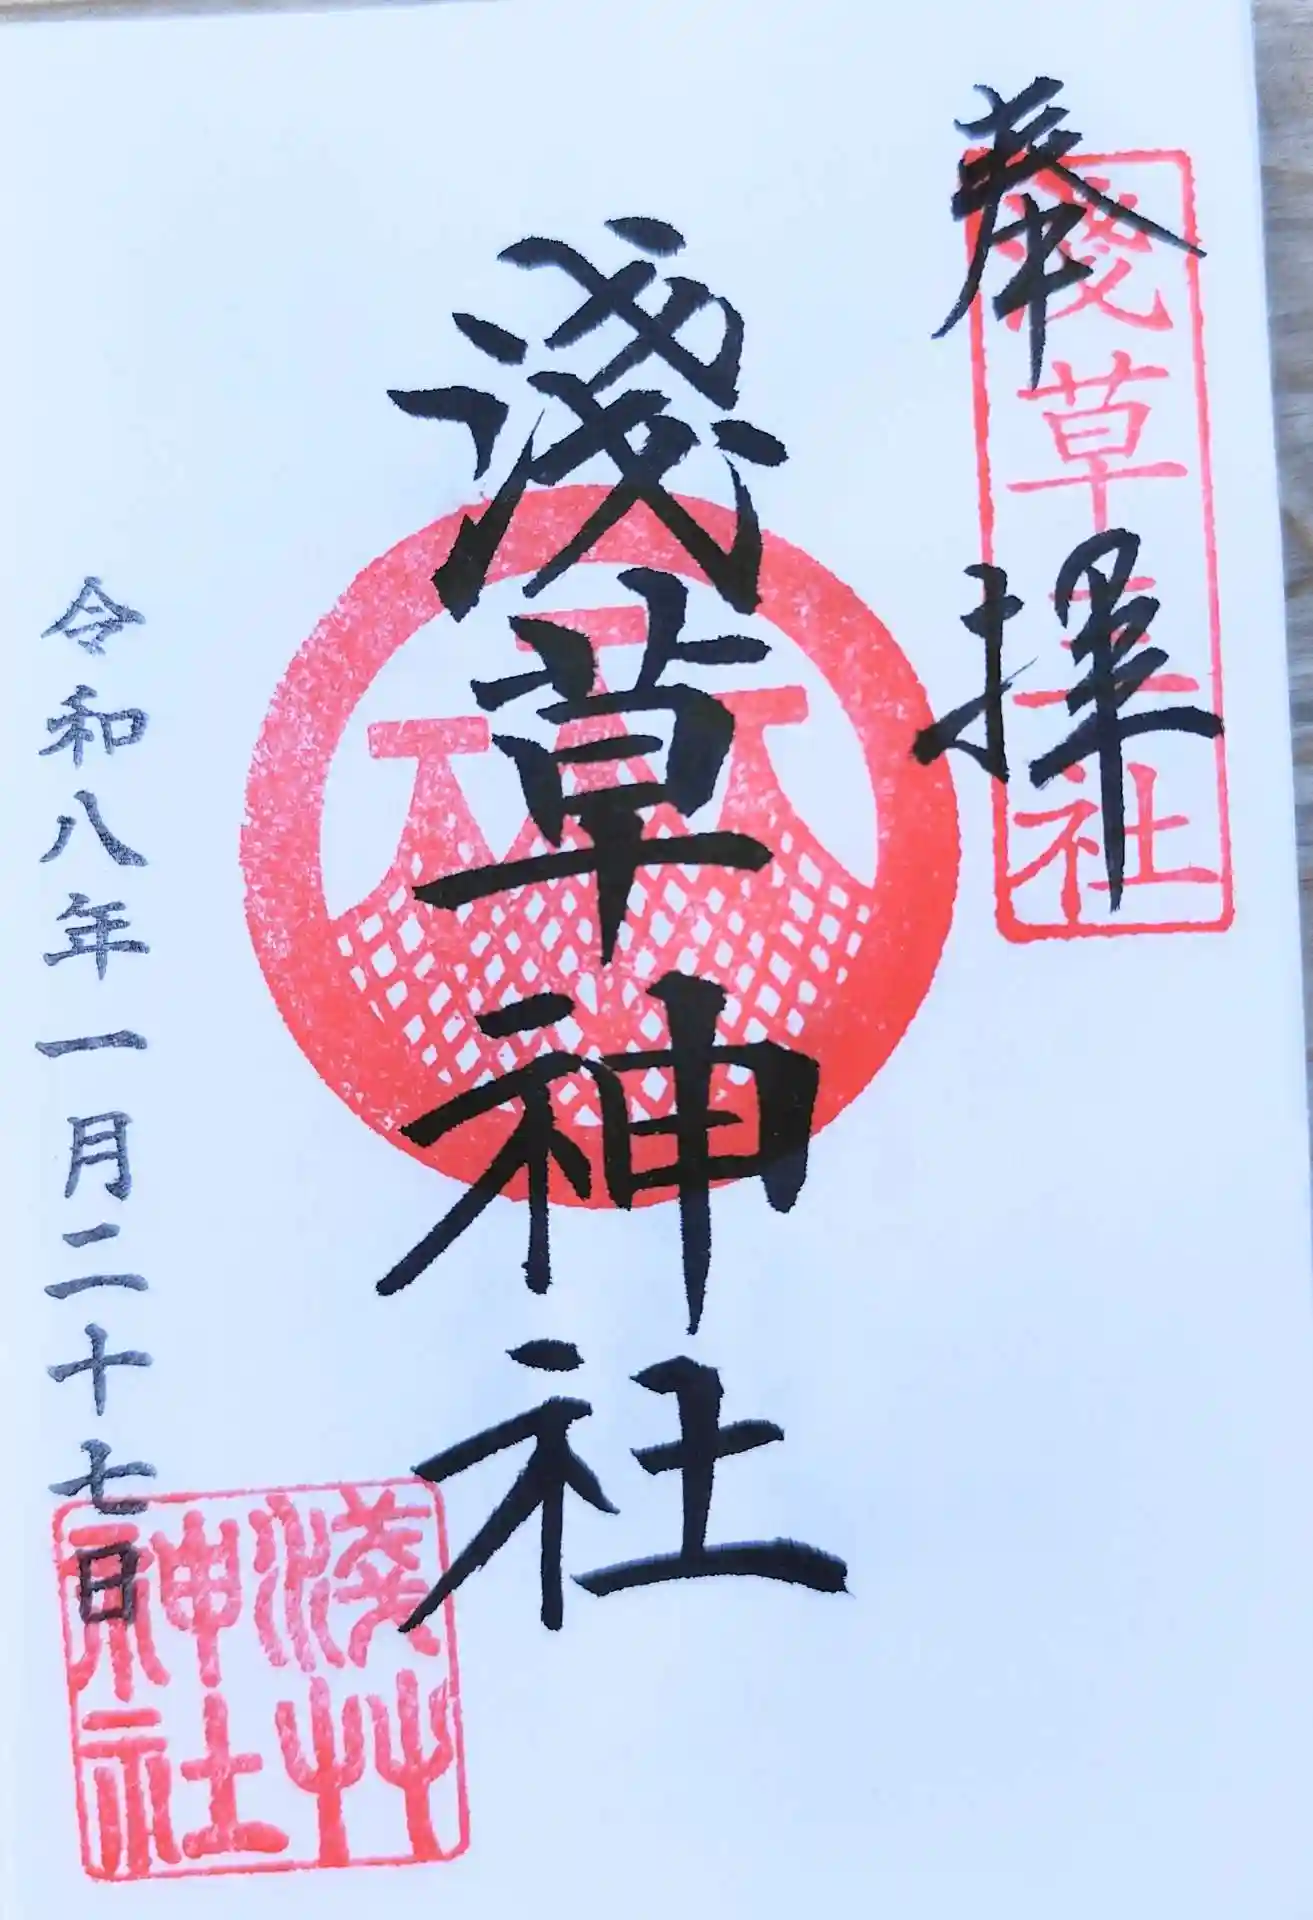 奉拝
淺草三社
淺草神社
令和八年一月二十七日
淺艸
神社